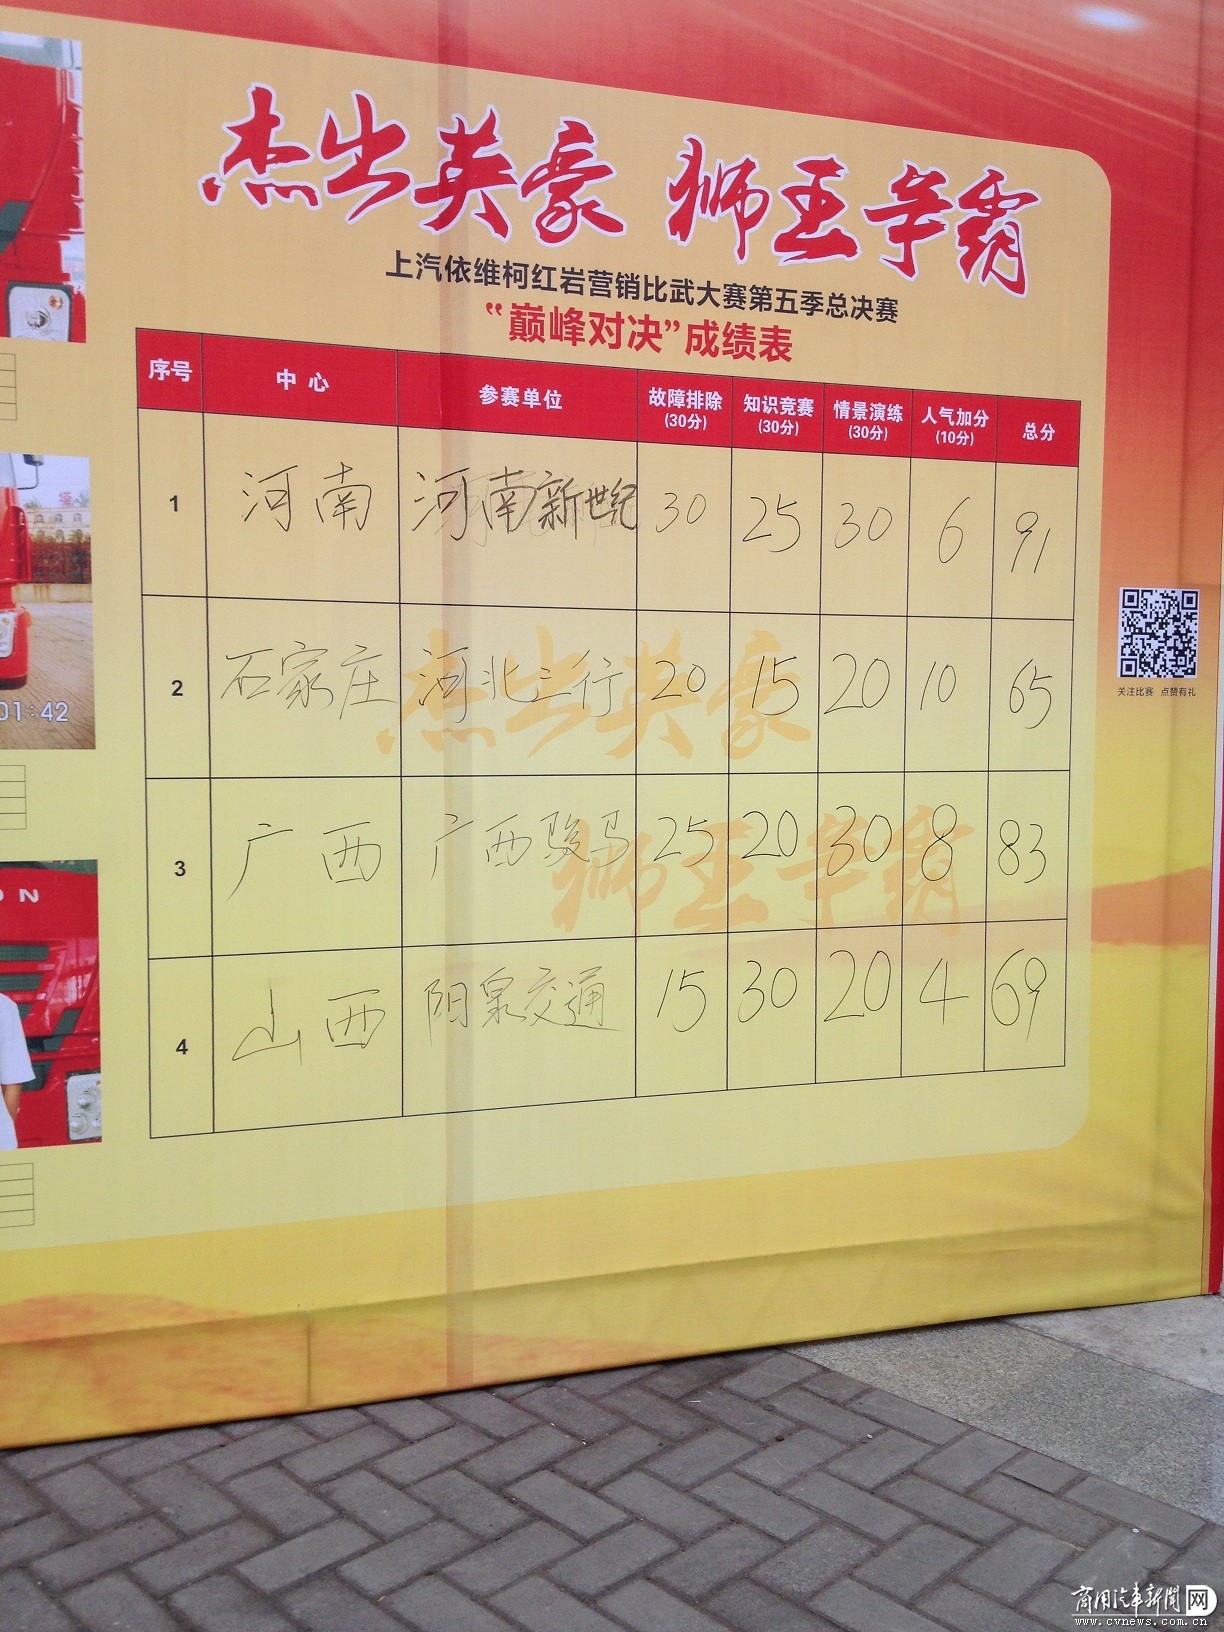 杰出英豪 狮王争霸
上汽依维柯红岩营销比武大赛第五季总决赛
“巅峰对决”成绩表
序号 中心 参赛单位 故障排除(30分) 知识竞赛(30分) 情景演练(30分) 人气加分(10分) 总分
1 河南 河南新世纪 30 25 30 6 91
2 石家庄 河北三行 20 15 20 10 65
3 广西 广西骏马 25 20 30 8 83
4 山西 阳泉交通 15 30 20 4 69
杰出英豪
狮王争霸
关注比赛 点赞有礼
01:42
ON
商用汽车新闻网
www.cvnews.com.cn